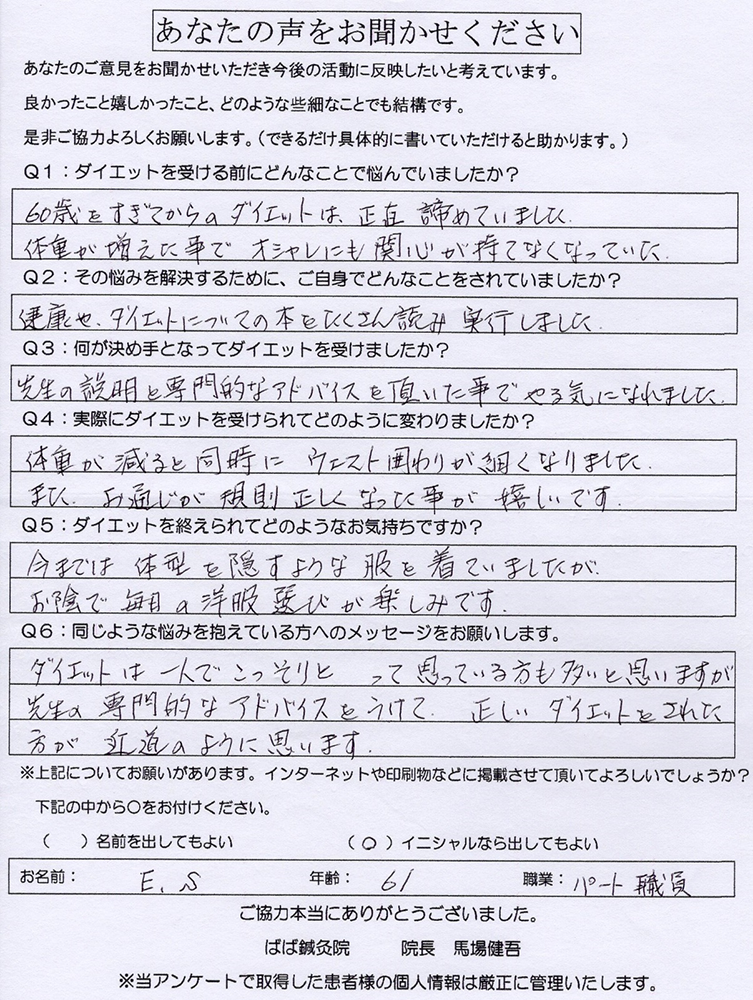 あなたの声をお聞かせください
あなたのご意見をお聞かせいただき今後の活動に反映したいと考えています。
良かったこと嬉しかったこと、どのような些細なことでも結構です。
是非ご協力よろしくお願いします。（できるだけ具体的に書いていただけると助かります。）
Q1：ダイエットを受ける前にどんなことで悩んでいましたか？
60歳をすぎてからのダイエットは、正直 諦めていました。
体重が増えた事で オシャレにも関心が持てなくなっていた。
Q2：その悩みを解決するために、ご自身でどんなことをされていましたか？
健康や、ダイエットについての本をたくさん読み 実行しました。
Q3：何が決め手となってダイエットを受けましたか？
先生の説明と専門的なアドバイスを頂いた事でやる気になれました。
Q4：実際にダイエットを受けられてどのように変わりましたか？
体重が減ると同時に ウエスト囲わりが細くなりました。
また、お通じが規則正しくなった事が嬉しいです。
Q5：ダイエットを終えられてどのようなお気持ちですか？
今までは体型を隠すような服を着ていましたが、
お陰で毎日の洋服選びが楽しみです。
Q6：同じような悩みを抱えている方へのメッセージをお願いします。
ダイエットは一人でこっそりと って思っている方も多いと思いますが
先生の専門的なアドバイスをうけて、正しいダイエットをされた
方が近道のように思います。
※上記についてお願いがあります。インターネットや印刷物などに掲載させて頂いてよろしいでしょうか？
下記の中から〇をお付けください。
（　　）名前を出してもよい　　（〇）イニシャルなら出してもよい
お名前： E.S 年齢： 61 職業： パート職員
ご協力本当にありがとうございました。
ばば鍼灸院　　院長　馬場健吾
※当アンケートで取得した患者様の個人情報は厳正に管理いたします。